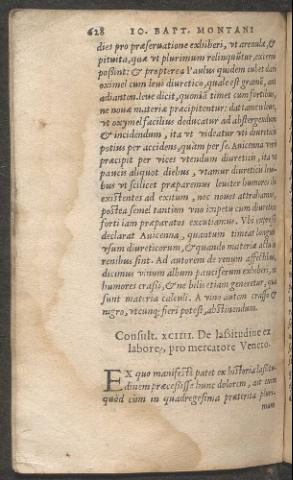 628 IO. BAPT. MONTANI
dies pro præseruatione exhiberi, vt arenulæ, &
pituita, quæ vt plurimum relinquũtur, exire
possint: & propterea Paulus quidem iubet dari
oximel cum leui diuretico, quale est gramẽ, aut
adianton. leue dicit, quoniã timet cum fortibus,
ne noua materia præcipitentur: dat tamen leue,
vt oxymel facilius deducatur ad abstergendum
& incidendum, ita vt videatur vti diuretico
potius per accidens, quàm per se. Auicenna verò
præcipit per vices vtendum diuretico, ita vt
paucis aliquot diebus, vtamur diureticis leui-
bus vt scilicet præparemus leuiter humores ibi
existentes ad exitum, nec nouos attrahamus,
postea semel tantùm vno impetu cum diuretico
forti iam præparatos excutiamus. Vbi expressè
declarat Auicenna, quantum timeat longum
vsum diureticorum, & quando materia actu in
renibus sint. Ad autorem de renum affectibus,
dicimus vinum album pauciferum exhiberi, ne
humores crassi, & ne bilis etiam generetur, quæ
sunt materia calculi. A vino autem crasso &
nigro, vtcunq; fieri potest, abstinendum.
Consult. XCIIII. De lassitudine ex
labore, pro mercatore Veneto.
EX quo manifestò patet ex historia lassitu-
dinem præcessisse hunc dolorem, ait enim
quòd cùm in quadragesima præterita pluri-
mum